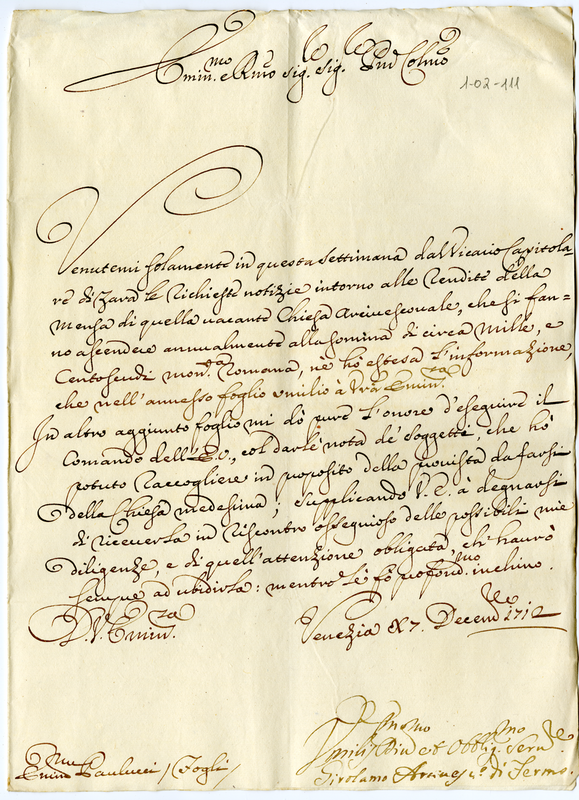 Emin.mo e Rmo Sig.re Sig.re Pnē Colmo
1-02-111
Venutemi solamente in questa settimana dal Vicario Capitola-
re di Zara le richieste notizie intorno alle rendite della
Mensa di quella vacante Chiesa Arcivescovale, che si fan-
no ascendere annualmente alla somma di circa Mille, e
Centoscudi mon.ta Romana, nè hò estesa l'informazione,
che nell'annesso foglio umilio à Vra Emin.za
In altro aggiunto foglio mi dò pure l'onore d'eseguire il
Comando dell'Ev., col darle nota de' soggetti, che hò
potuto raccogliere in proposito della provista da farsi
della Chiesa medesima; supplicando V. E. à degnarsi
di riceverla in riscontro ossequioso delle possibili mie
diligenze, e di quell'attenzione obligata ch'haurò
sempre ad ubidirla: mentre le fò profond.mo inchino.
D. V. Emin.za
Venezia 17. Decem.re 1712
Umiliss. Div. et Obblig. Serv.re
Girolamo Arcivesc.o di Fermo
Emin.mo Paulucci / Fogli /